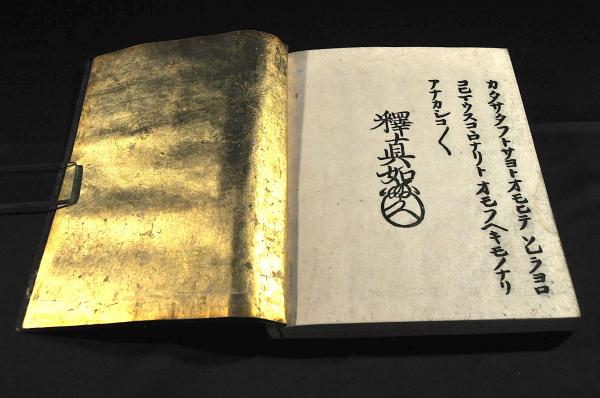 カタサタフトサヨトオモヒテ ソレヲヨロ
コヒマウスコヽロナリト オモフヘキモノナリ
アナカシコ〱
釋眞如